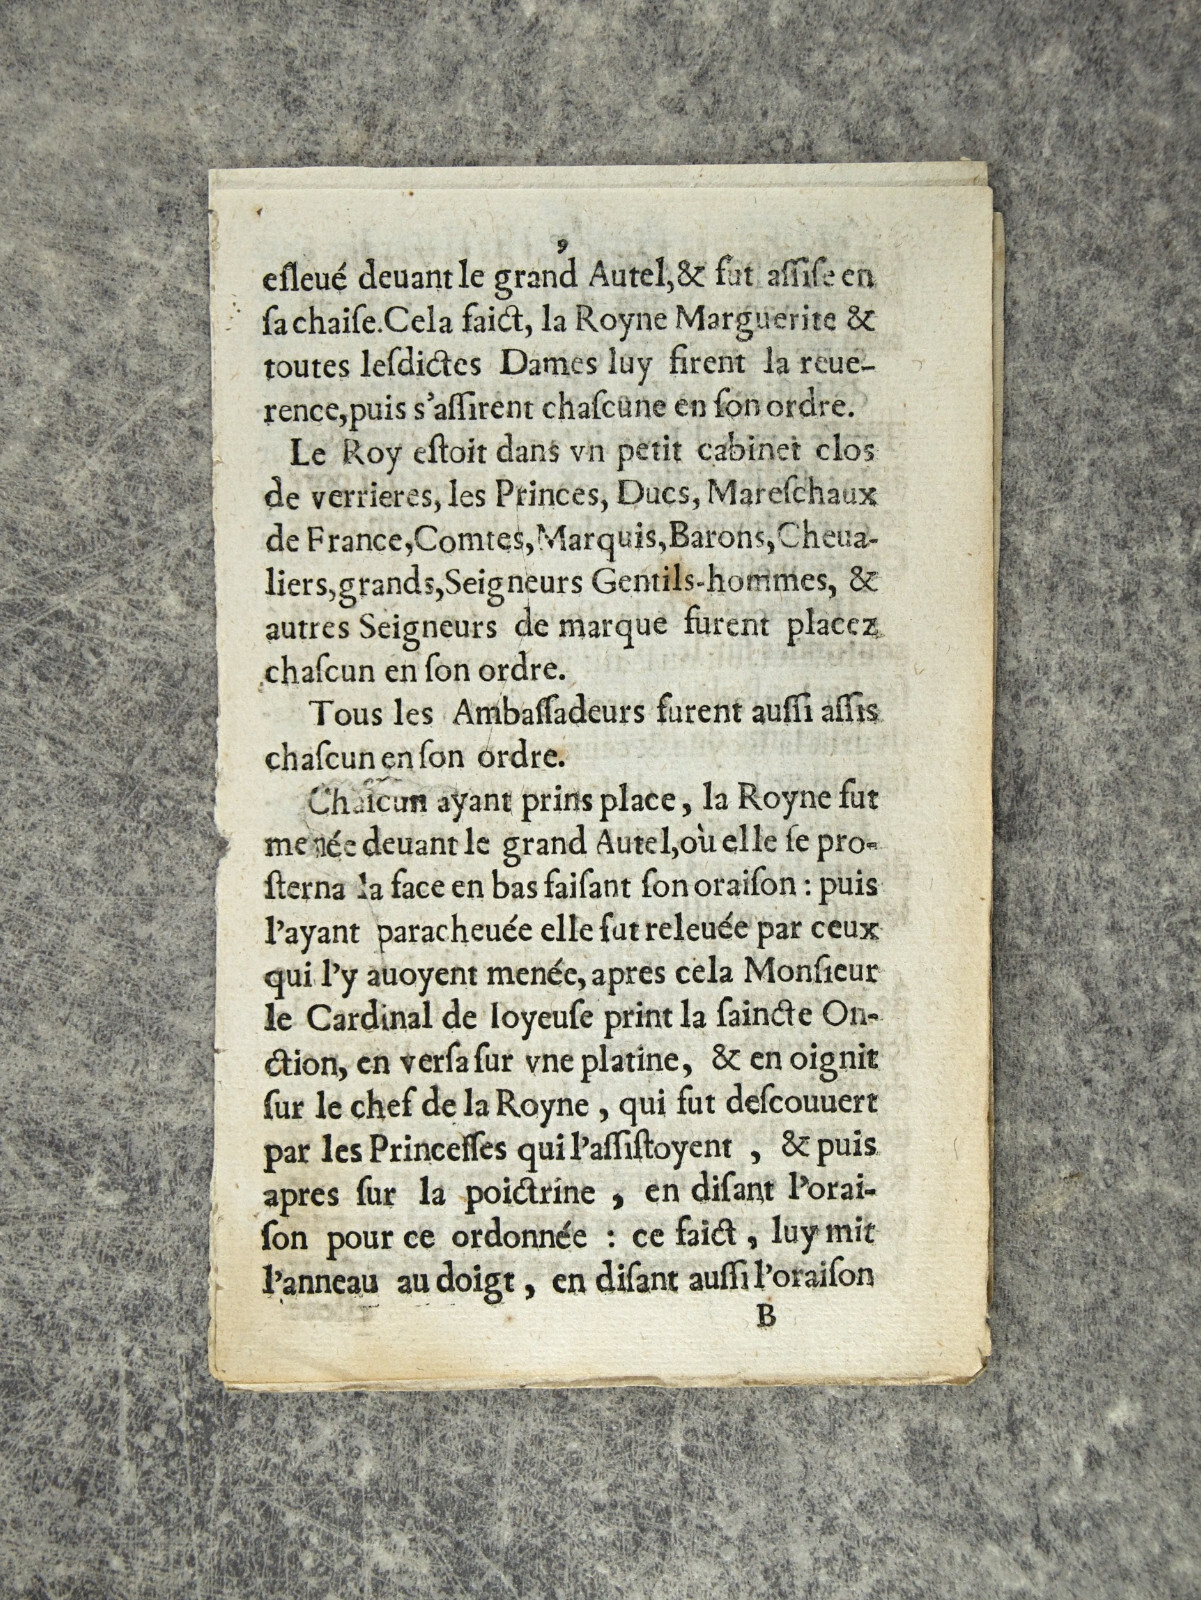 9
eſleué deuant le grand Autel,& fut aſſiſe en
ſa chaiſe.Cela faict, la Royne Marguerite &
toutes leſdictes Dames luy firent la reue-
rence,puis s'aſſirent chaſcune en ſon ordre.
Le Roy eſtoit dans vn petit cabinet clos
de verrieres, les Princes, Ducs, Mareſchaux
de France,Comtes,Marquis,Barons,Cheua-
liers,grands,Seigneurs Gentils-hommes, &
autres Seigneurs de marque furent placez
chaſcun en ſon ordre.
Tous les Ambaſſadeurs furent auſſi aſſis
chaſcun en ſon ordre.
Chaſcun ayant prins place, la Royne fut
menée deuant le grand Autel,où elle ſe pro-
ſterna la face en bas faiſant ſon oraiſon : puis
l'ayant paracheuée elle fut releuée par ceux
qui l'y auoyent menée, apres cela Monſieur
le Cardinal de Ioyeuſe print la ſaincte On-
ction, en verſa ſur vne platine, & en oignit
ſur le chef de la Royne , qui fut deſcouuert
par les Princeſſes qui l'aſſiſtoyent , & puis
apres ſur la poictrine , en diſant l'orai-
ſon pour ce ordonnée : ce faict , luy mit
l'anneau au doigt , en diſant auſſi l'oraiſon
B